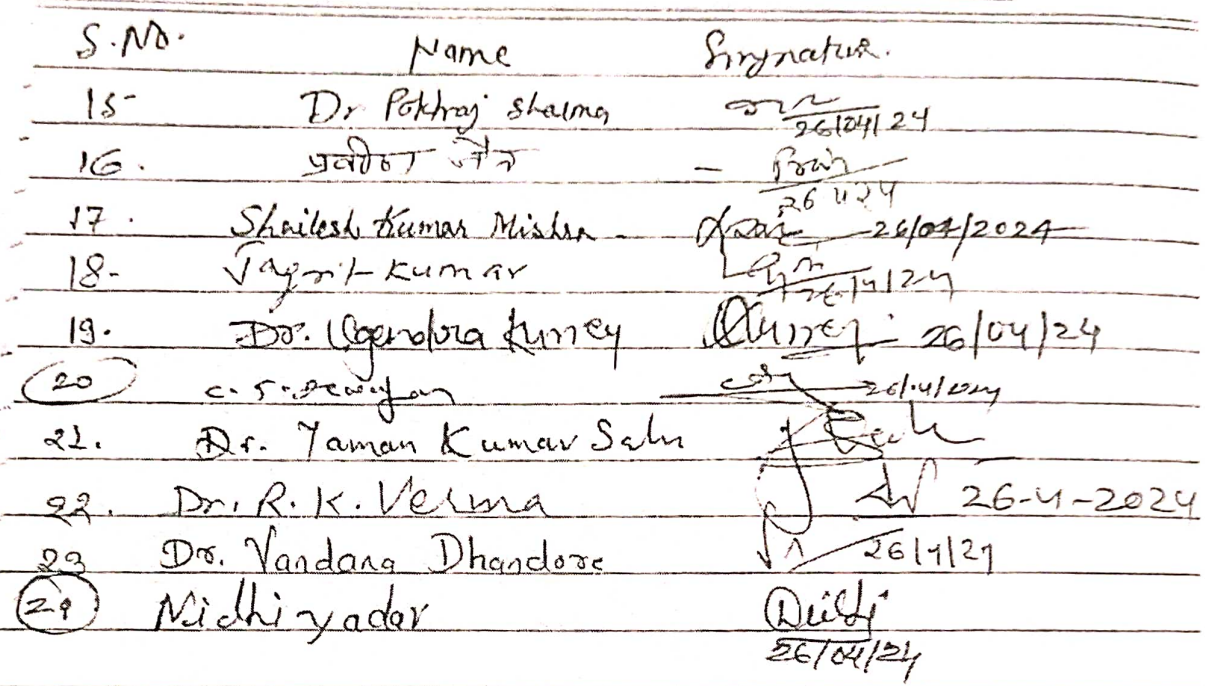 S.No. Name Sirynature.
15 Dr Pokhraj Sharma 26/04/24
16. प्रवीण जैन - 26/4/24
17. Shailesh Kumar Mishra 26/04/2024
18- Jagrit Kumar 26/4/24
19. Dr. Ugendra Kurrey Kurrey 26/04/24
20 C.S. 26/4/2024
21. Dr. Yaman Kumar Sahu
22. Dr. R.K. Verma 26-4-2024
23 Dr. Vandana Dhandore 26/4/24
24 Nidhi yadav 26/04/24